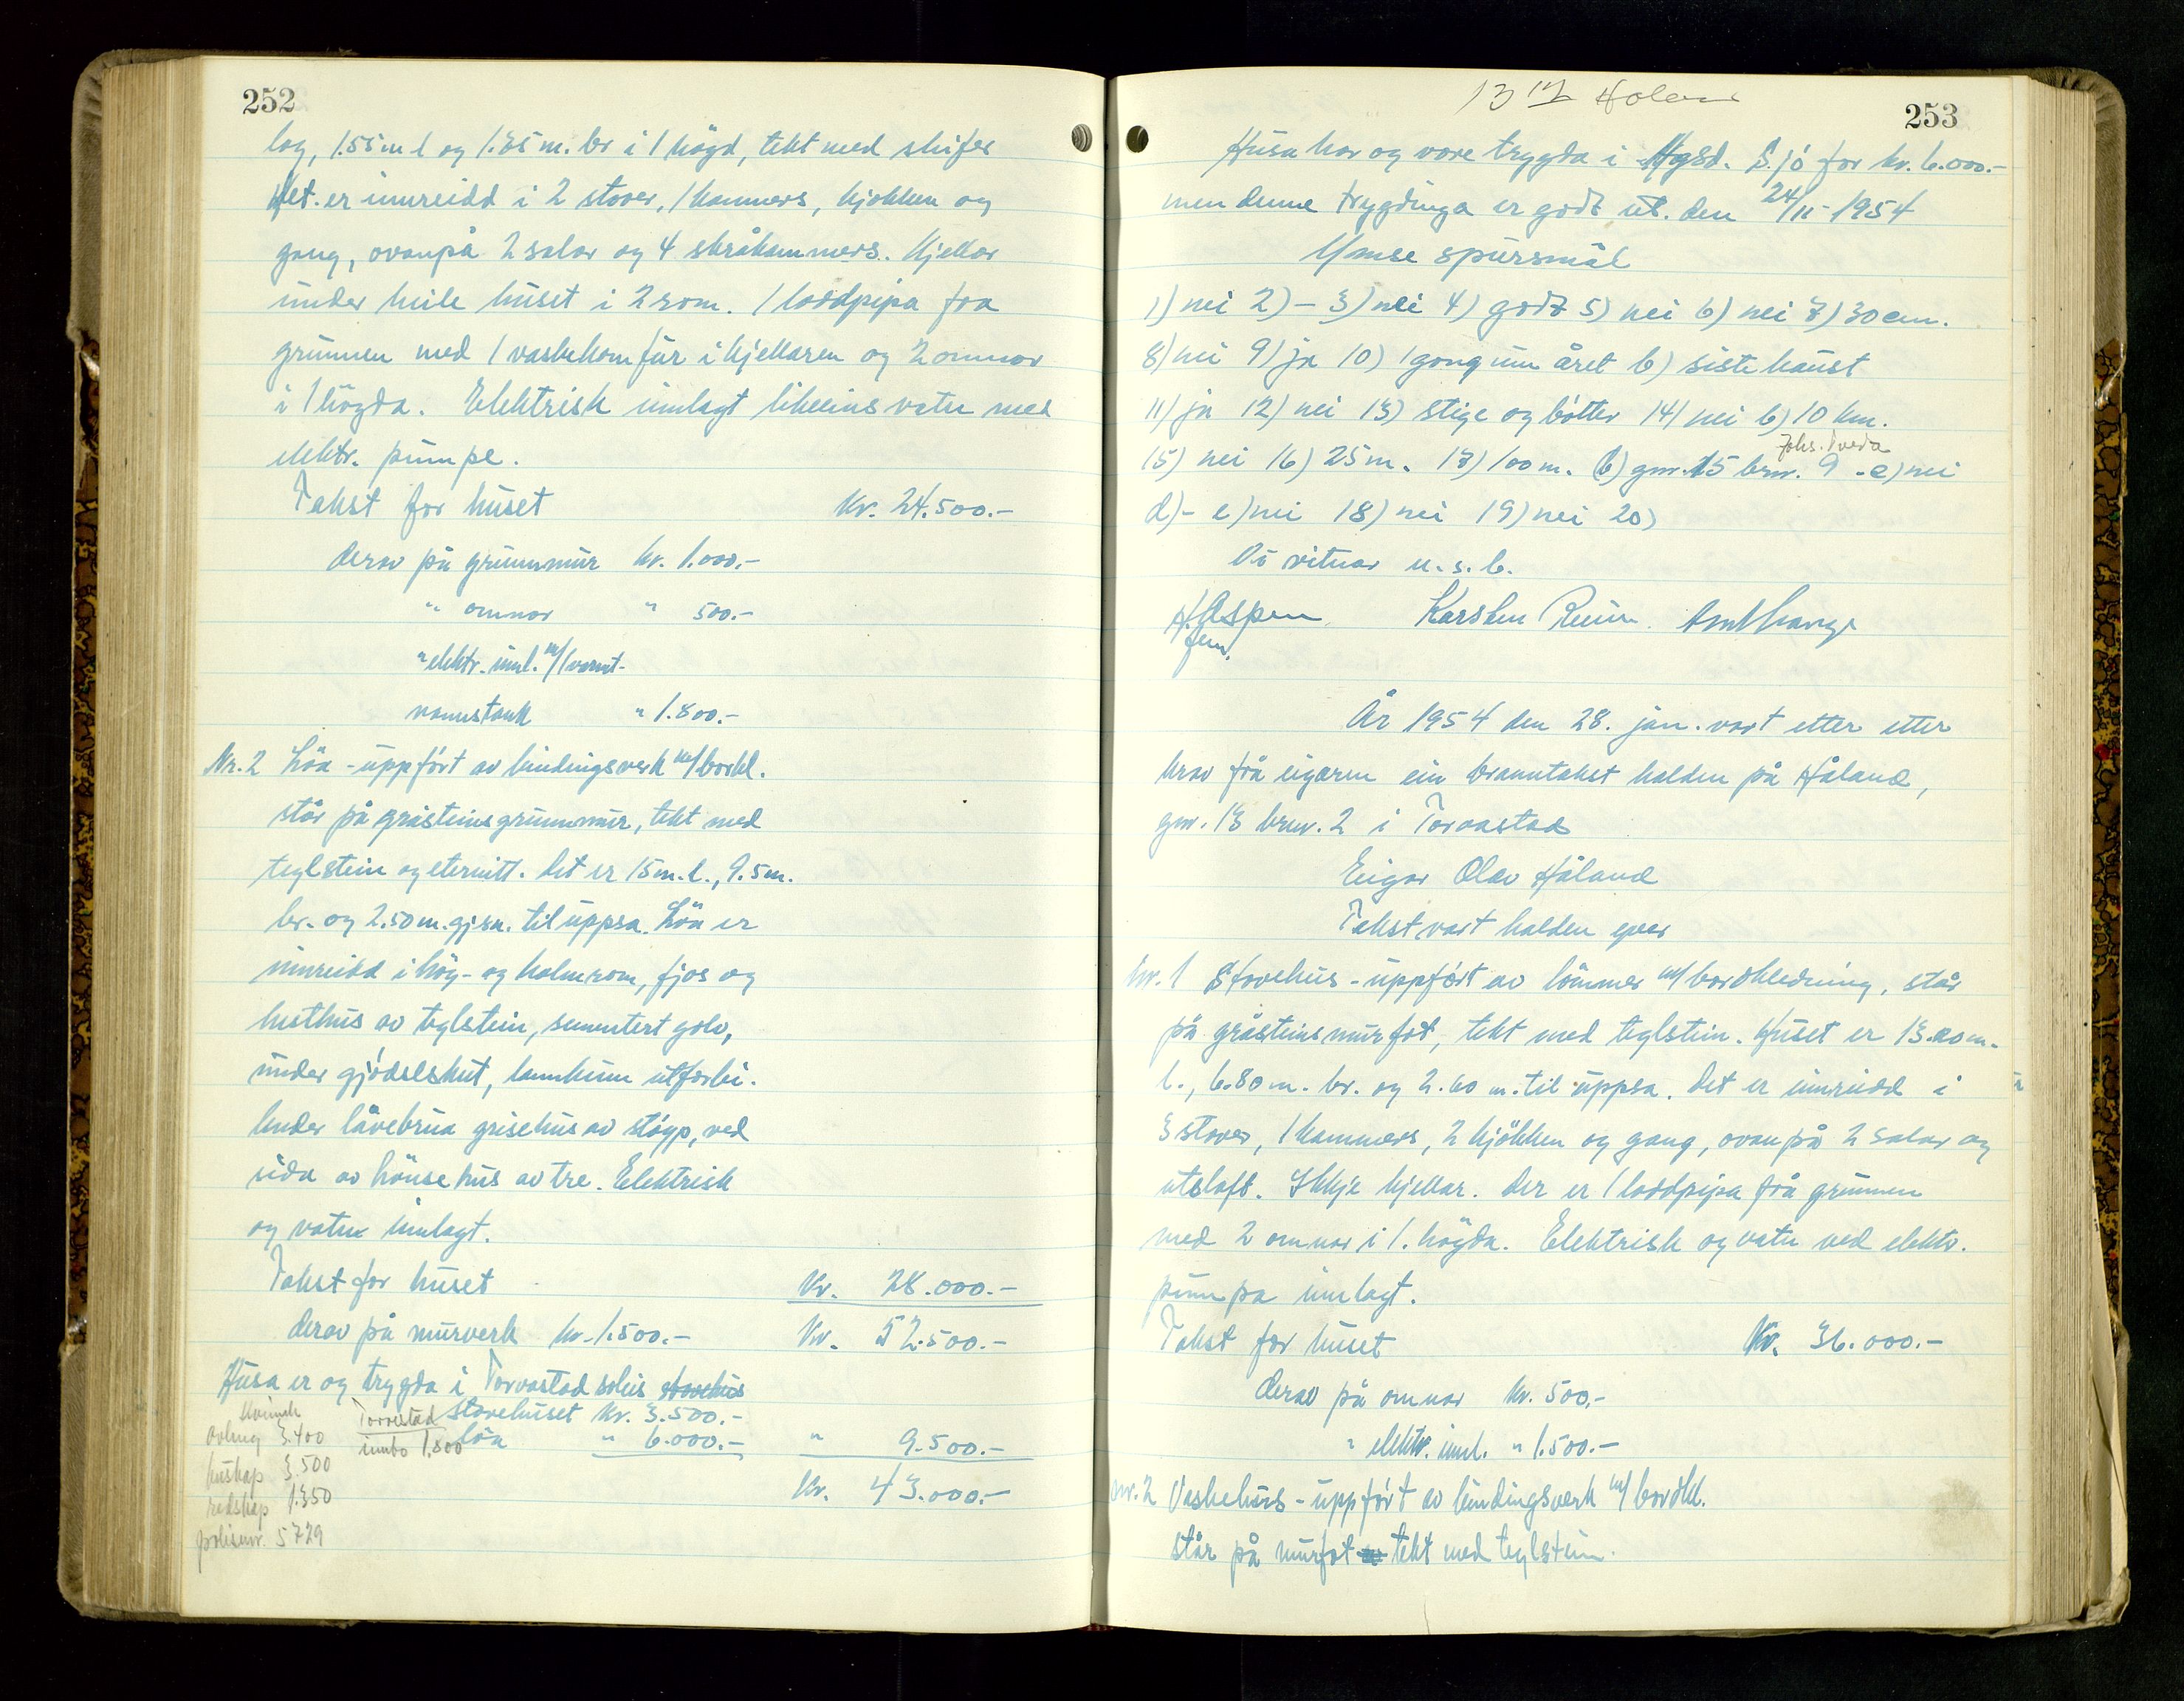 252
log, 1.55 m l og 1.35 m. br i 1 högd, tekt med skifer
Det er innreidd i 2 stover, 1 kammers, kjøkken og
gang, ovanpå 2 salar og 4 skråkammers. Kjellar
under heile huset i 2 rom. 1 loddpipa fra
grunnen med 1 vaskekomfur i kjellaren og 2 omnar
i 1 högda. Elektrisk innlagt likeeins vatn med
elektr. pumpe.
Takst for huset Kr. 24.500.-
derav på grunnmur kr. 1.000.-
" omnar " 500.-
" elektr. innl. m/1 varmt-
vannstank " 1.800.-
Nr. 2 Löa - uppført av bindingsverk m/bordkl.
står på gråsteinsgrunnmur, tekt med
teglstein og eternitt. Det er 15 m. l., 9.5 m.
br. og 2.50 m. gj.sn. til uppsa. Löa er
innreidd i høy- og halmrom, fjos og
hesthus av teglstein, sementert golv,
under gjødselskut, lannkum utforbi.
Under låvebrua grisehus av støyp, ved
sida av hönsehus av tre. Elektrisk
og vatn innlagt.
Takst for huset Kr. 28.000.-
derav på murverk kr. 1.500.- Kr. 52.500.-
Husa er og trygda i Torvastad solus stovehus
stovehuset Kr. 3.500.-
löa " 6.000.- " 9.500.-
Kr. 43.000.-
Torvastad
innbo 1.800
avling 3.400
buskap 3.500
redskap 1.350
polisenr. 5729
13/2 Håland
253
Husa har og vore trygda i Hgsd. Sjó for kr. 6.000.-
men denne trygdinga er gådt ut. den 24/11-1954
Ymse spursmål
1) nei 2) - 3) nei 4) godt 5) nei 6) nei 7) 30 cm.
8) nei 9) ja 10) 1 gong um året b) siste haust
11) ja 12) nei 13) stige og bötter 14) nei b) 10 km.
Johs. Tveda
15) nei 16) 25 m. 17) 100 m. b) gnr. 15 bnr. 9 - c) nei
d) - e) nei 18) nei 19) nei 20)
Då vitnar u. s. b.
H. Aspen Karsten
fem.
År 1954 den 28. jan. vart etter etter
krav frå eigaren ein branntakst halden på Håland,
gnr. 13 brnr. 2 i Torvastad
Eigar Olav Håland
Takst vart halden yver
Nr. 1 Stovehus - uppført av tömmer m/bordkledning, står
på gråsteinsmurfot, tekt med teglstein. Huset er 13.20 m.
l., 6.80 m. br. og 2.60 m. til uppsa. Det er innreidd i
3 stover, 1 kammers, 2 kjøkken og gang, ovanpå 2 salar og
utsloft. Ikkje kjellar. Der er 1 loddpipa frå grunnen
med 2 omnar i 1. högda. Elektrisk og vatn ved elektr.
pumpa innlagt.
Takst for huset Kr. 36.000.-
derav på omnar kr. 500.-
" elektr. innl. " 1.500.-
nr. 2 Vaskehus - uppført av bindingsverk m/bordkl.
står på murfot tekt med teglstein.